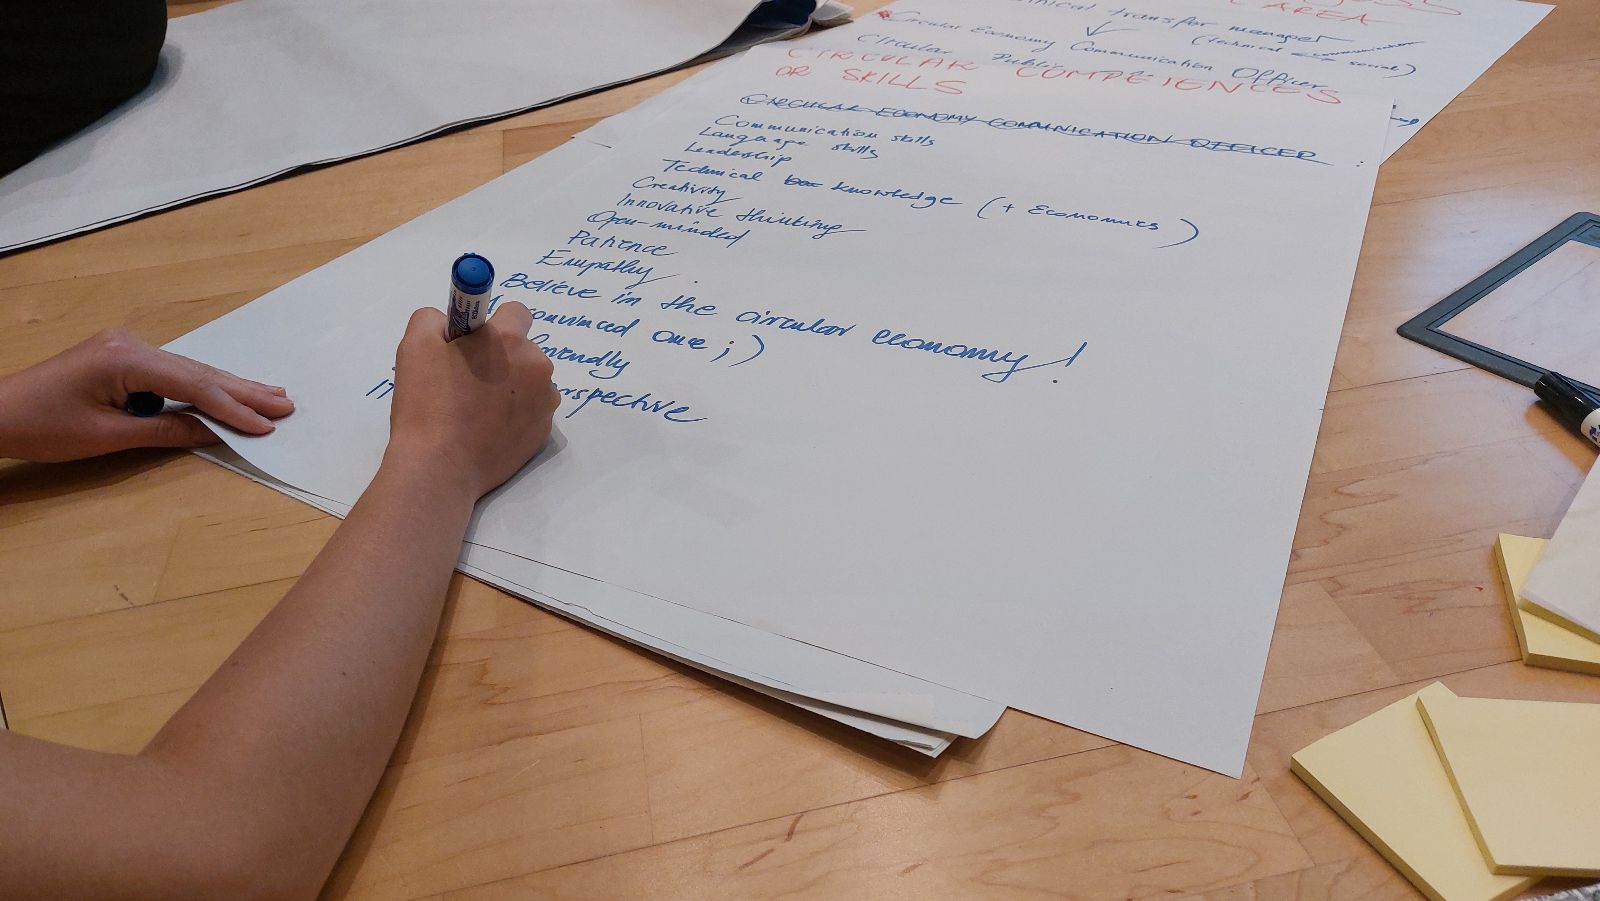 AREA
transfer manager
(technical social)
Circular Economy Communication Officers
Circular Public
CIRCULAR COMPETENCES
OR SKILLS
CIRCULAR ECONOMY COMMUNICATION OFFICER :
Communication skills
Language skills
Leadership
Technical knowledge (+ Economics)
Creativity
Innovative thinking
Open-minded
Patience
Empathy
Believe in the circular economy!
convinced one ;)
friendly